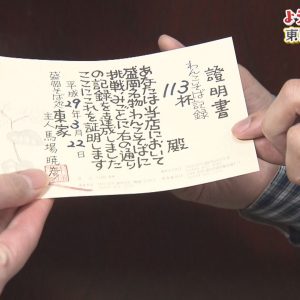 證明書
わんこそば記録
113杯
殿
あなたは当店において
盛岡名物わんこそばに
挑戦みごとに右の通り
の記録を達成しました
ここにこれを証明します
平成29年3月22日
盛岡そば処
東家
主人 馬場暁彦
よ
東